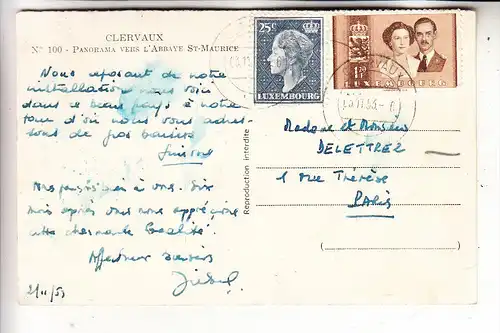 CLERVAUX
N° 100 - PANORAMA VERS L'ABBAYE ST-MAURICE
Nous reposant de notre
installation nous voici
dans ce beau pays à notre
tour d'où nous vous adres-
sons de gros baisers
Simone
Nos pensées à vous. Dix
mois après vous nous apprécions
cette charmante localité.
Affectueux baisers
2/11/53
Reproduction interdite
25c
LUXEMBOURG
1F50
LUXEMBOURG
CLERVAUX
Madame et Monsieur
DELETTREZ
1 rue Thérèse
PARIS